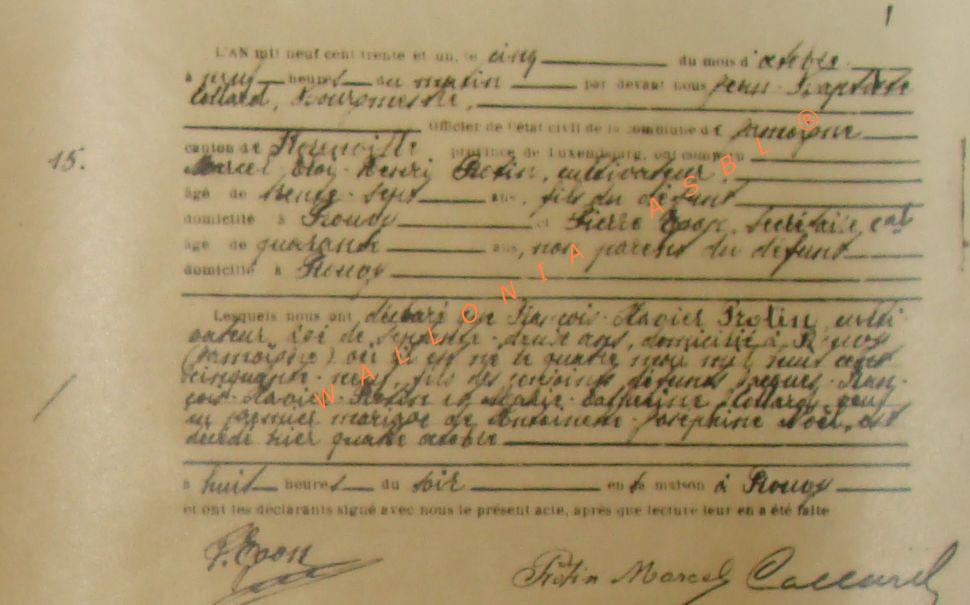 L'AN mil neuf cent trente et un, le cinq du mois d'octobre
à neuf heures du matin par devant nous Jean-Baptiste
Collard, Bourgmestre,
Officier de l'état civil de la commune de Jamoigne
15. canton de province de Luxembourg, ont comparu
Marcel Henri Protin, cultivateur
âgé de trente-sept ans, fils du défunt
domicilié à Prouvy et Pierre secrétaire cal
âgé de quarante ans, non parent du défunt
domicilié à Prouvy
Lesquels nous ont déclaré que François-Xavier Protin, culti
vateur, âgé de septante-deux ans, domicilié à Prouvy
(Jamoigne) où il est né le quatre mil huit cent
cinquante-neuf, fils des conjoints défunts Jacques-Fran-
çois-Xavier Protin et Marie-Catherine Collard, veuf
en premier mariage de Joséphine Noël, est
décédé hier quatre octobre
à huit heures du soir en sa maison à Prouvy
et ont les déclarants signé avec nous le présent acte, après que lecture leur en a été faite
Protin Marcel
WALLONIA ASBL ®